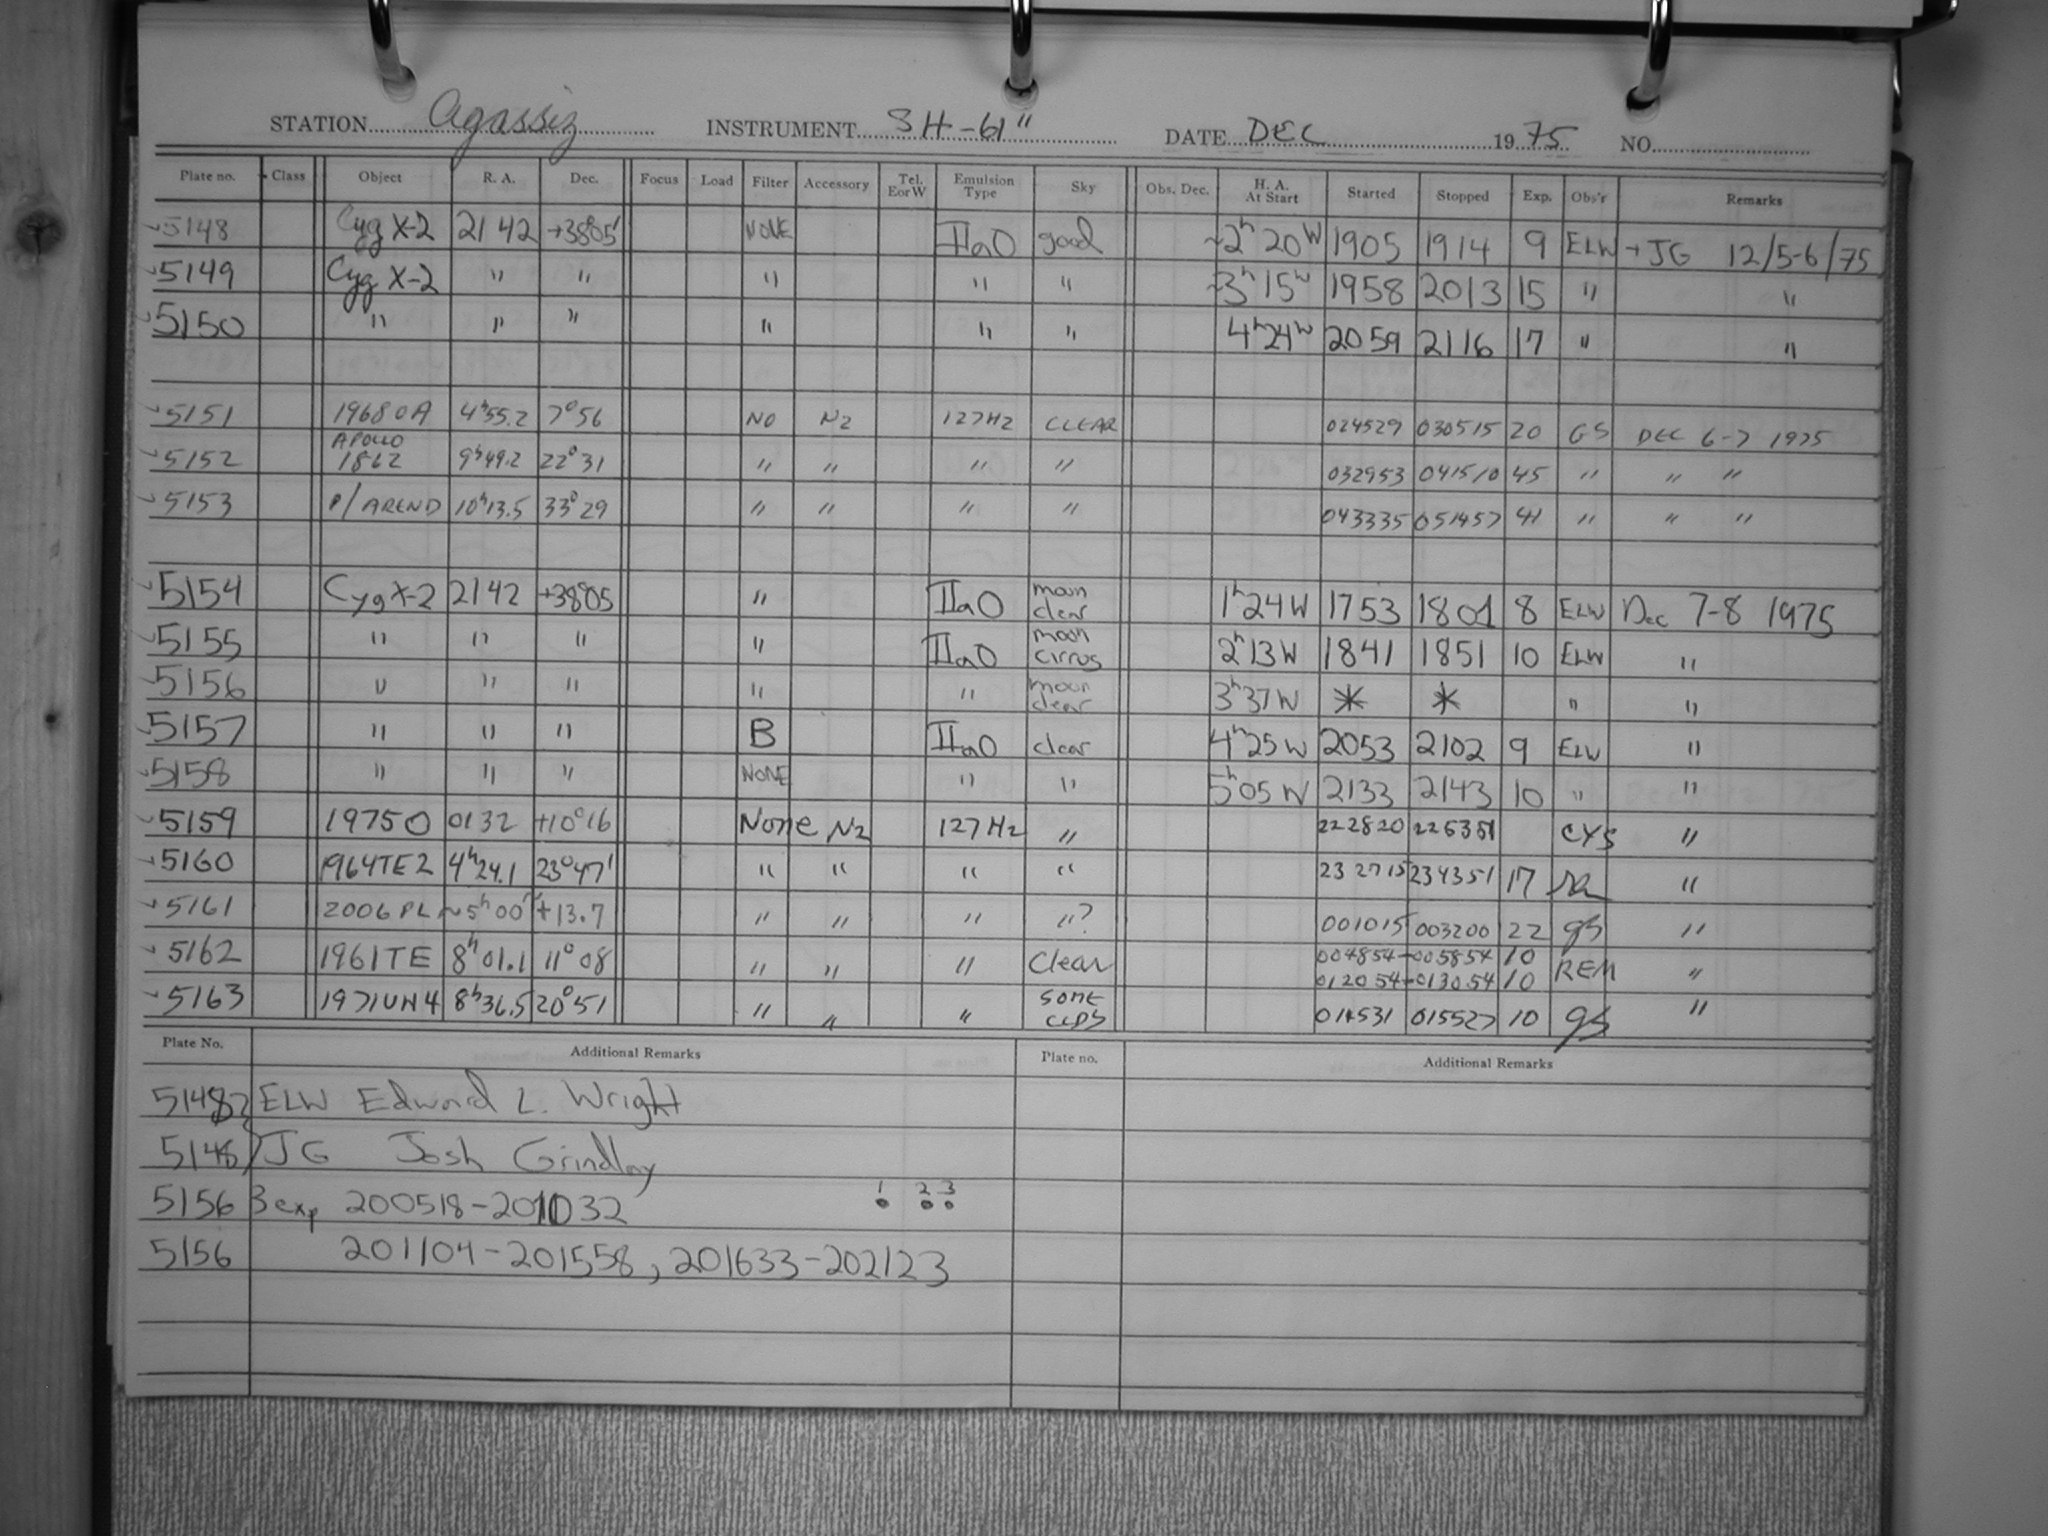 STATION Agassiz INSTRUMENT SH-61" DATE DEC 1975 NO.
Plate no. Class Object R. A. Dec. Focus Load Filter Accessory Tel. E or W Emulsion Type Sky Obs. Dec. H. A. At Start Started Stopped Exp. Obs'r Remarks
5148 Cyg X-2 21 42 +38°05' NONE IIaO good ~2h 20W 1905 1914 9 ELW + JG 12/5-6/75
5149 Cyg X-2 " " " " " ~3h 15W 1958 2013 15 " "
5150 " " " " " " 4h 24W 2059 2116 17 " "
5151 1968 OA 4h55.2 7°56 NO N2 127H2 CLEAR 024529 030515 20 GS DEC 6-7 1975
5152 APOLLO 1862 9h49.2 22°31 " " " " 032953 041510 45 " " "
5153 P/ AREND 10h13.5 33°29 " " " " 043335 051457 41 " " "
5154 Cyg X-2 21 42 +38°05 " IIaO moon clear 1h 24W 1753 1801 8 ELW Dec 7-8 1975
5155 " " " " IIaO moon cirrus 2h 13W 1841 1851 10 ELW "
5156 " " " " " moon clear 3h 37W * * " "
5157 " " " B IIaO clear 4h 25W 2053 2102 9 ELW "
5158 " " " NONE " " 5h 05W 2133 2143 10 " "
5159 1975 O 0132 +10°16 None N2 127H2 " 222820 CYS "
5160 1964TE2 4h24.1 23°47' " " " " 232715 234351 17 "
5161 2006 PL ~5h00m +13.7 " " " "? 001015 003200 22 gs "
5162 1961TE 8h01.1 11°08 " " " Clear 004854-005854 10 REM "
012054-013054 10
5163 1971UN4 8h36.5 20°51 " " " SOME CLDS 014531 015527 10 gs "
Plate No. Additional Remarks Plate no. Additional Remarks
5148 ELW Edward L. Wright
5148 JG Josh Grindlay
5156 3 exp 200518-201032 1 2 3
5156 201104-201558, 201633-202123